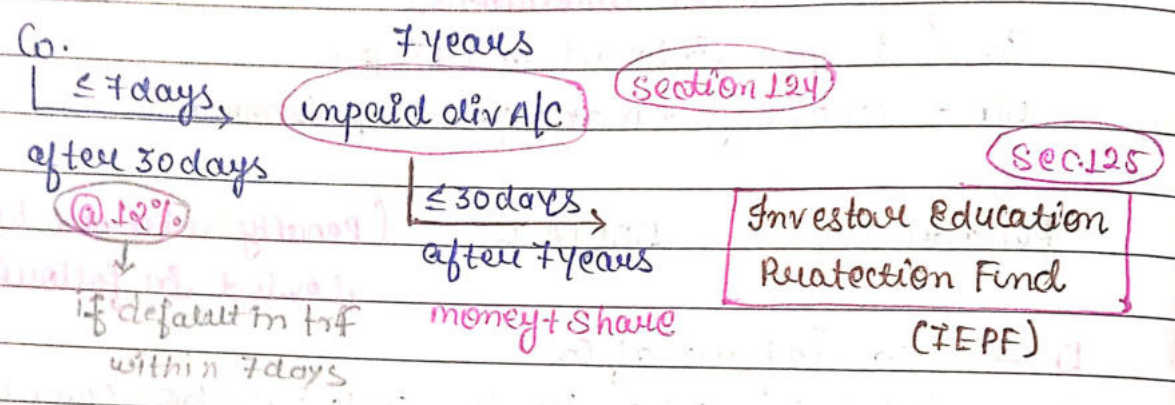 Co.
7 years
≤ 7 days
unpaid div A/C
section 124
after 30 days
Sec.125
@ 12%
≤ 30 days
after 7 years
Investour Education
Ruatection Find
if defalut in trf
within 7 days
money + Share
(IEPF)